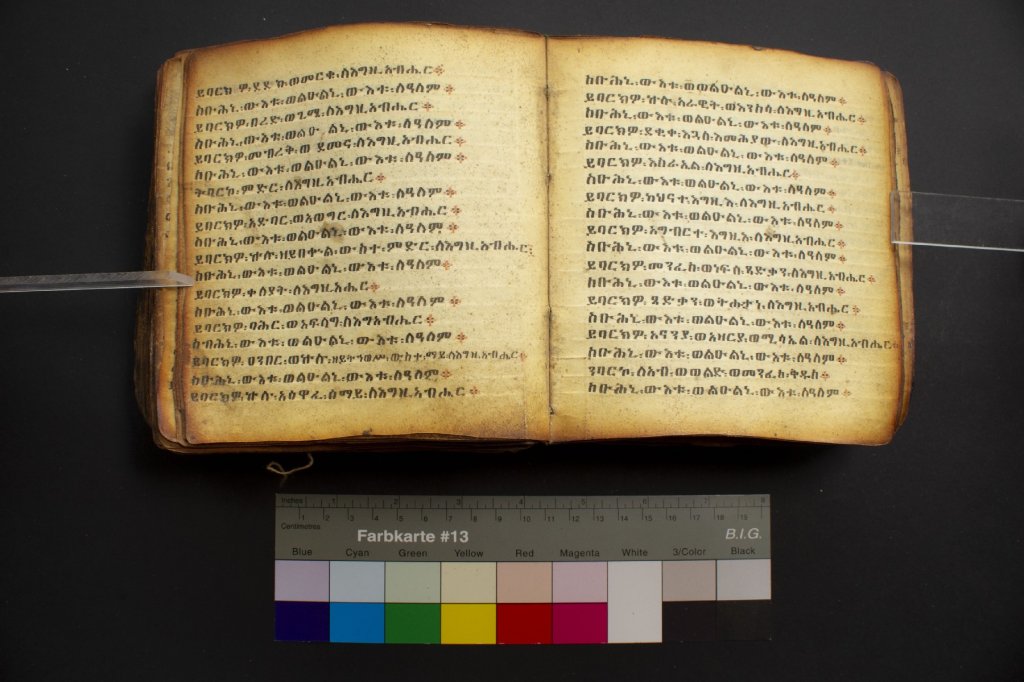 ይባርክዎ፡ ቍር፡ ወመርቄ፡ ለእግዚአብሔር
ስቡሕኒ፡ ውእቱ፡ ወልዑልኒ፡ ውእቱ፡ ለዓለም
ይባርክዎ፡ በረድ፡ ወጊሜ፡ ለእግዚአብሔር
ስቡሕኒ፡ ውእቱ፡ ወልዑልኒ፡ ውእቱ፡ ለዓለም
ይባርክዎ፡ መብረቅ፡ ወ ደመና፡ ለእግዚአብሔር
ስቡሕኒ፡ ውእቱ፡ ወልዑልኒ፡ ውእቱ፡ ለዓለም
ትባርኮ፡ ምድር፡ ለእግዚአብሔር
ስቡሕኒ፡ ውእቱ፡ ወልዑልኒ፡ ውእቱ፡ ለዓለም
ይባርክዎ፡ አድባር፡ ወአውግር፡ ለእግዚአብሔር
ስቡሕኒ፡ ውእቱ፡ ወልዑልኒ፡ ውእቱ፡ ለዓለም
ይባርክዎ፡ ኵሉ፡ ዘይበቍል፡ ውስተ፡ ምድር፡ ለእግዚአብሔር
ስቡሕኒ፡ ውእቱ፡ ወልዑልኒ፡ ውእቱ፡ ለዓለም
ይባርክዎ፡ ቀላያት፡ ለእግዚአብሔር
ስቡሕኒ፡ ውእቱ፡ ወልዑልኒ፡ ውእቱ፡ ለዓለም
ይባርክዎ፡ ባሕር፡ ወአፍላግ፡ ለእግዚአብሔር
ስቡሕኒ፡ ውእቱ፡ ወልዑልኒ፡ ውእቱ፡ ለዓለም
ይባርክዎ፡ ዐንበር፡ ወኵሉ፡ ዘይትኀወሥ፡ ውስተ፡ ማይ፡ ለእግዚአብሔር
ስቡሕኒ፡ ውእቱ፡ ወልዑልኒ፡ ውእቱ፡ ለዓለም
ይባርክዎ፡ ኵሉ፡ አዕዋፈ፡ ሰማይ፡ ለእግዚአብሔር
ስቡሕኒ፡ ውእቱ፡ ወወልዑልኒ፡ ውእቱ፡ ለዓለም
ይባርክዎ፡ ኵሉ፡ አራዊት፡ ወእንስሳ፡ ለእግዚአብሔር
ስቡሕኒ፡ ውእቱ፡ ወልዑልኒ፡ ውእቱ፡ ለዓለም
ይባርክዎ፡ ደቂቀ፡ እጓለ፡ እመሕያው፡ ለእግዚአብሔር
ስቡሕኒ፡ ውእቱ፡ ወልዑልኒ፡ ውእቱ፡ ለዓለም
ይባርክዎ፡ እስራኤል፡ ለእግዚአብሔር
ስቡሕኒ፡ ውእቱ፡ ወልዑልኒ፡ ውእቱ፡ ለዓለም
ይባርክዎ፡ ካህናተ፡ እግዚእ፡ ለእግዚአብሔር
ስቡሕኒ፡ ውእቱ፡ ወልዑልኒ፡ ውእቱ፡ ለዓለም
ይባርክዎ፡ አግብርተ፡ እግዚእ፡ ለእግዚአብሔር
ስቡሕኒ፡ ውእቱ፡ ወልዑልኒ፡ ውእቱ፡ ለዓለም
ይባርክዎ፡ መንፈስ፡ ወነፍሰ፡ ጻድቃን፡ ለእግዚአብሔር
ስቡሕኒ፡ ውእቱ፡ ወልዑልኒ፡ ውእቱ፡ ለዓለም
ይባርክዎ፡ ጻድቃን፡ ወትሑታነ፡ ለእግዚአብሔር
ስቡሕኒ፡ ውእቱ፡ ወልዑልኒ፡ ውእቱ፡ ለዓለም
ይባርክዎ፡ አናንያ፡ ወአዛርያ፡ ወሚሳኤል፡ ለእግዚአብሔር
ስቡሕኒ፡ ውእቱ፡ ወልዑልኒ፡ ውእቱ፡ ለዓለም
ንባርኮ፡ ለአብ፡ ወወልድ፡ ወመንፈስ፡ ቅዱስ
ስቡሕኒ፡ ውእቱ፡ ወልዑልኒ፡ ውእቱ፡ ለዓለም
Inches 1 2 3 4 5 6 7 8
1 2 3 4 5 6 7 8 9 10 11 12 13 14 15 16 17 18 19
Centimetres
Farbkarte #13 B.I.G.
Blue Cyan Green Yellow Red Magenta White 3/Color Black